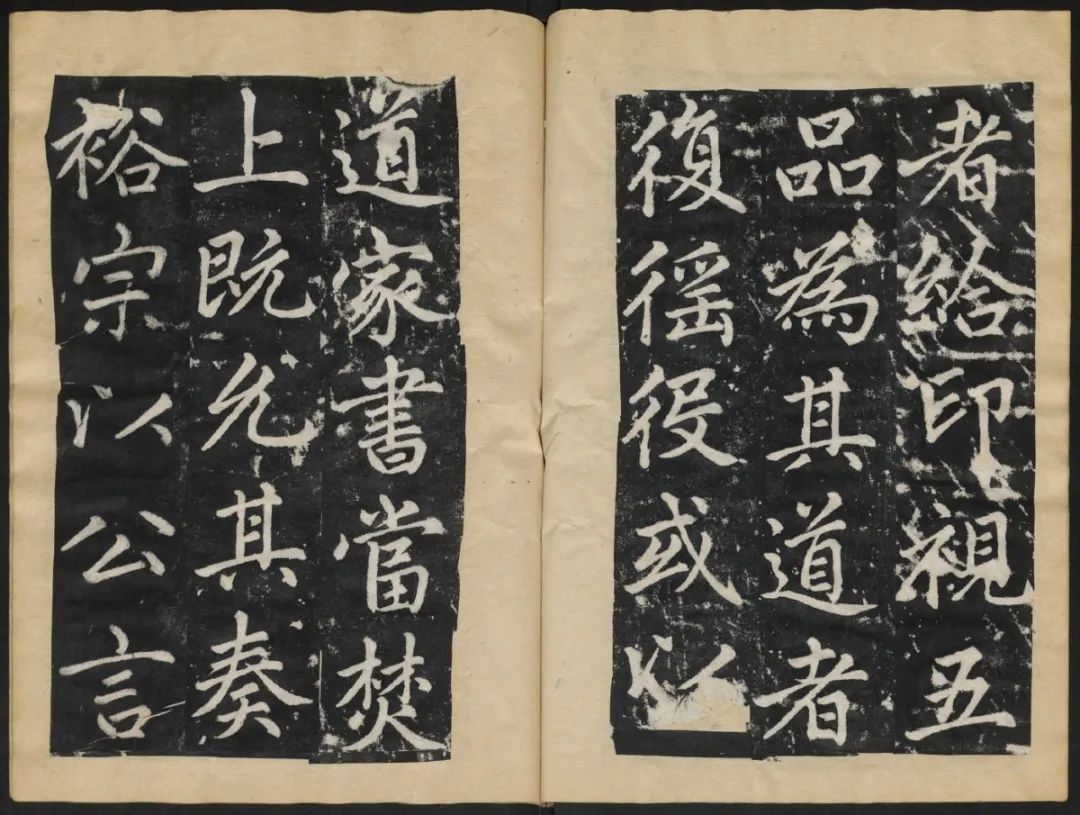 者給印視五
品為其道者
復徭役或以
道家書當焚
上既允其奏
裕宗以公言